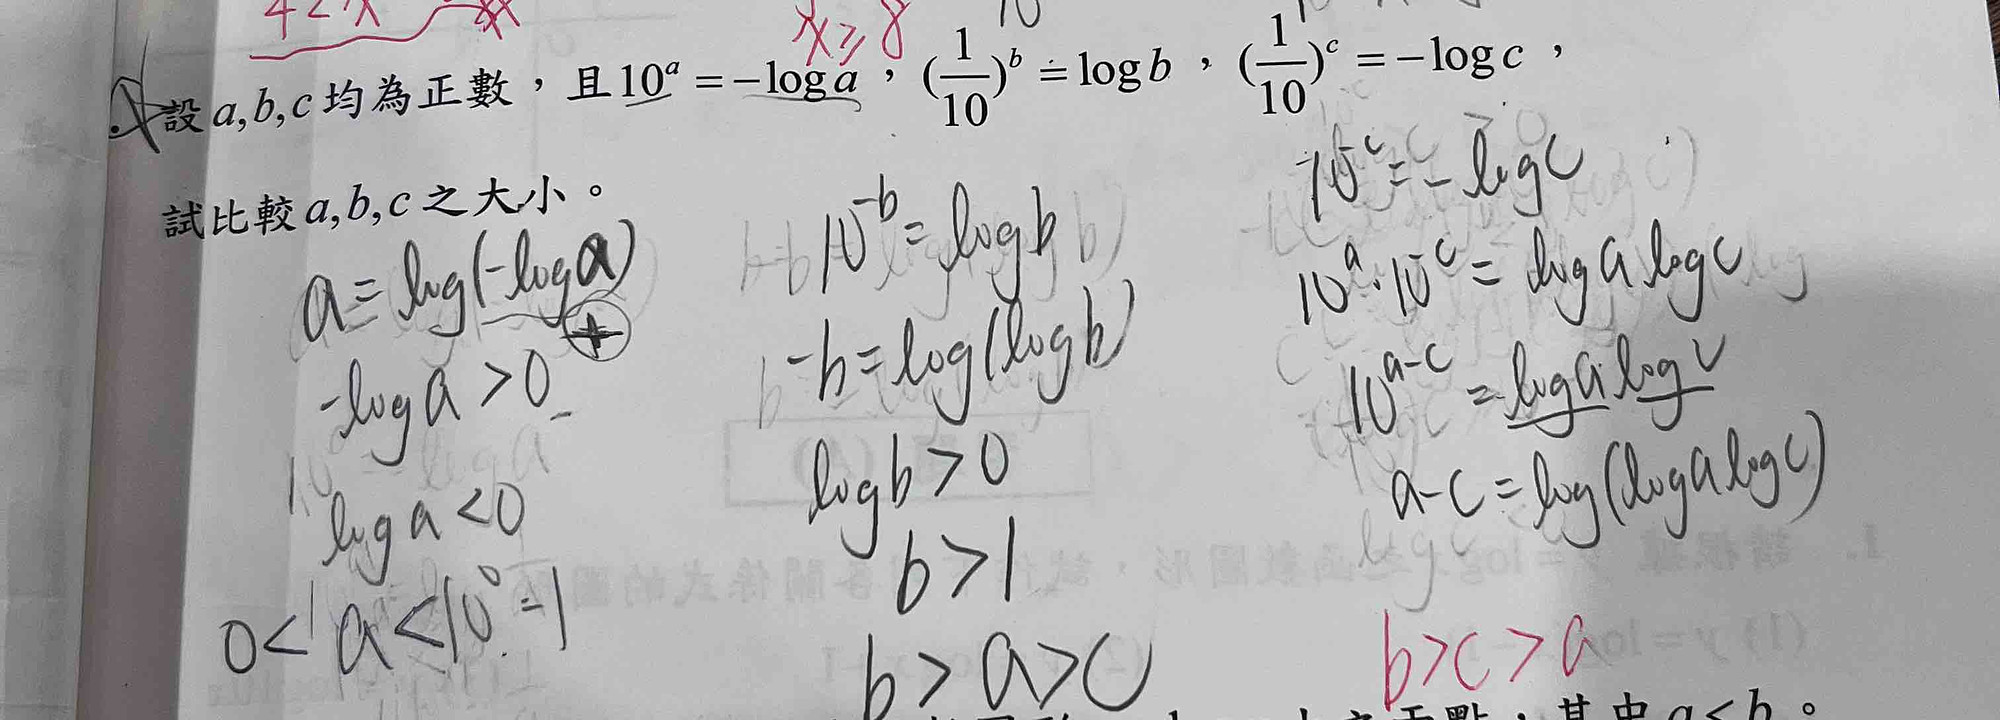 4<x
x≥8
設a,b,c均為正數，且10^a=-log a，(1/10)^b=log b，(1/10)^c=-log c，
試比較a,b,c之大小。
a=log(-log a)
+
-log a>0
log a<0
0<a<10^0=1
10^-b=log b
-b=log(log b)
log b>0
b>1
b>a>c
10^-c=-log c
10^a·10^-c=log a log c
10^a-c=log a log c
a-c=log(log a log c)
b>c>a
，其中a<b。